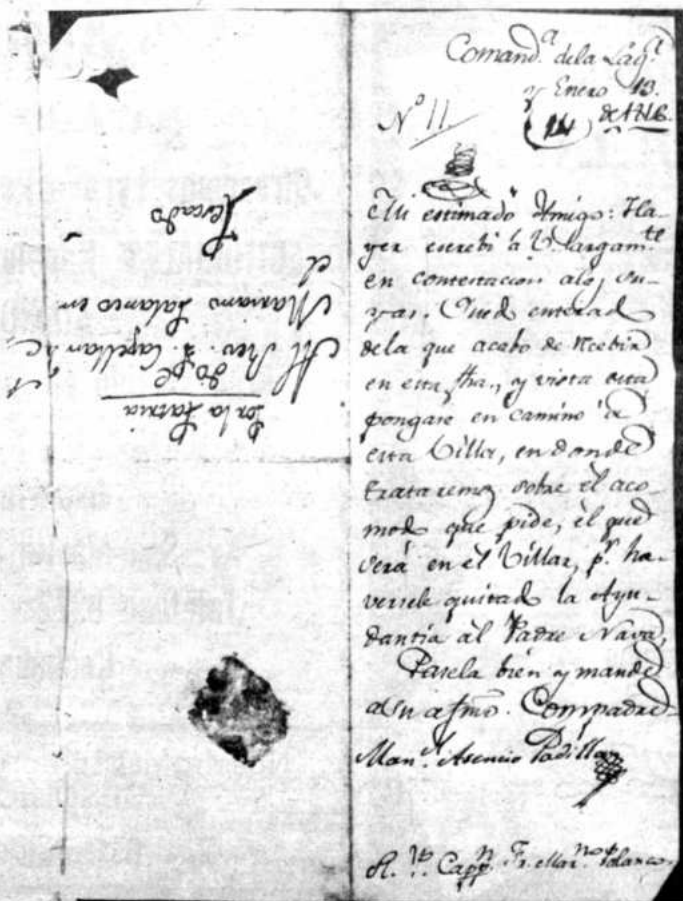 Comand.ª dela Lag.ª
y Enero 13.
de 1816.
Nº 11
Mi estimado Amigo: Ha-
yer escrebi à V. largam.te
en contestacion alas su-
yas. Qued enterad
dela que acabo de recebir
en esta fha., y vista esta
pongase en camino à
esta Villa, en donde
trataremos sobre el aco-
mod que pide, el que
será en el Villar, p.r ha-
versele quitad la Ayu-
dantia al Padre Nava,
Paselo bien y mande
a su afmo. Compadre
Man.l Asencio Padilla
R. Capp.n Fr. Mar.no Polanco.
Por la Patria
Al Rev. P. Capellan
Mariano Polanco en
el
Pescado